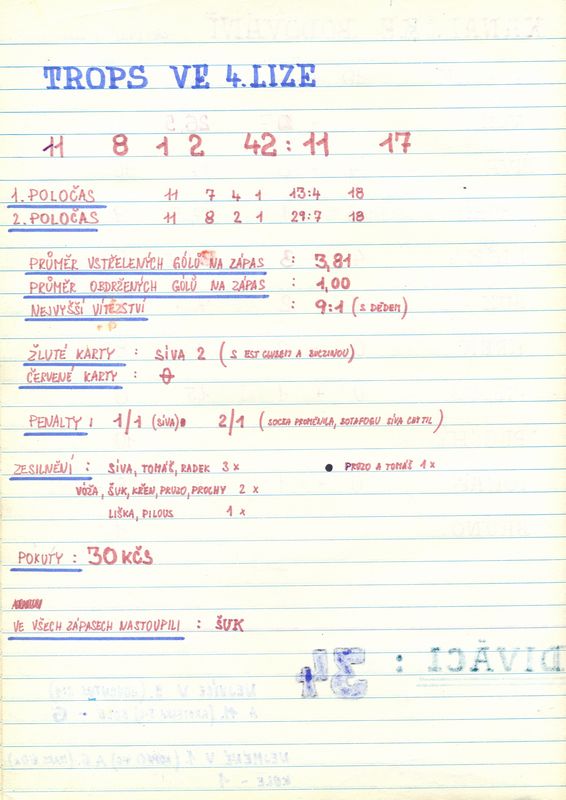 TROPS VE 4.LIZE
11 8 1 2 42:11 17
1. POLOČAS 11 7 4 1 13:4 18
2. POLOČAS 11 8 2 1 29:7 18
PRŮMĚR VSTŘELENÝCH GÓLŮ NA ZÁPAS : 3,81
PRŮMĚR OBDRŽENÝCH GÓLŮ NA ZÁPAS : 1,00
NEJVYŠŠÍ VÍTĚZSTVÍ : 9:1 (S DĚDEM)
ŽLUTÉ KARTY : SÍVA 2 (S EST CLUBEM A BUČINOU)
ČERVENÉ KARTY : 0
PENALTY : 1/1 (SÍVA) 2/1 (SOCKA PROMĚNILA, BOTAFOGU SÍVA CHYTIL)
ZESILNĚNÍ : SÍVA, TOMÁŠ, RADEK 3x ● PRUZO A TOMÁŠ 1x
VÓŽA, ŠUK, KŘEN, PRUZO, PROCHY 2x
LIŠKA, PILOUS 1x
POKUTY : 30 KČS
VE VŠECH ZÁPASECH NASTOUPILI : ŠUK
DIVÁCI : 34